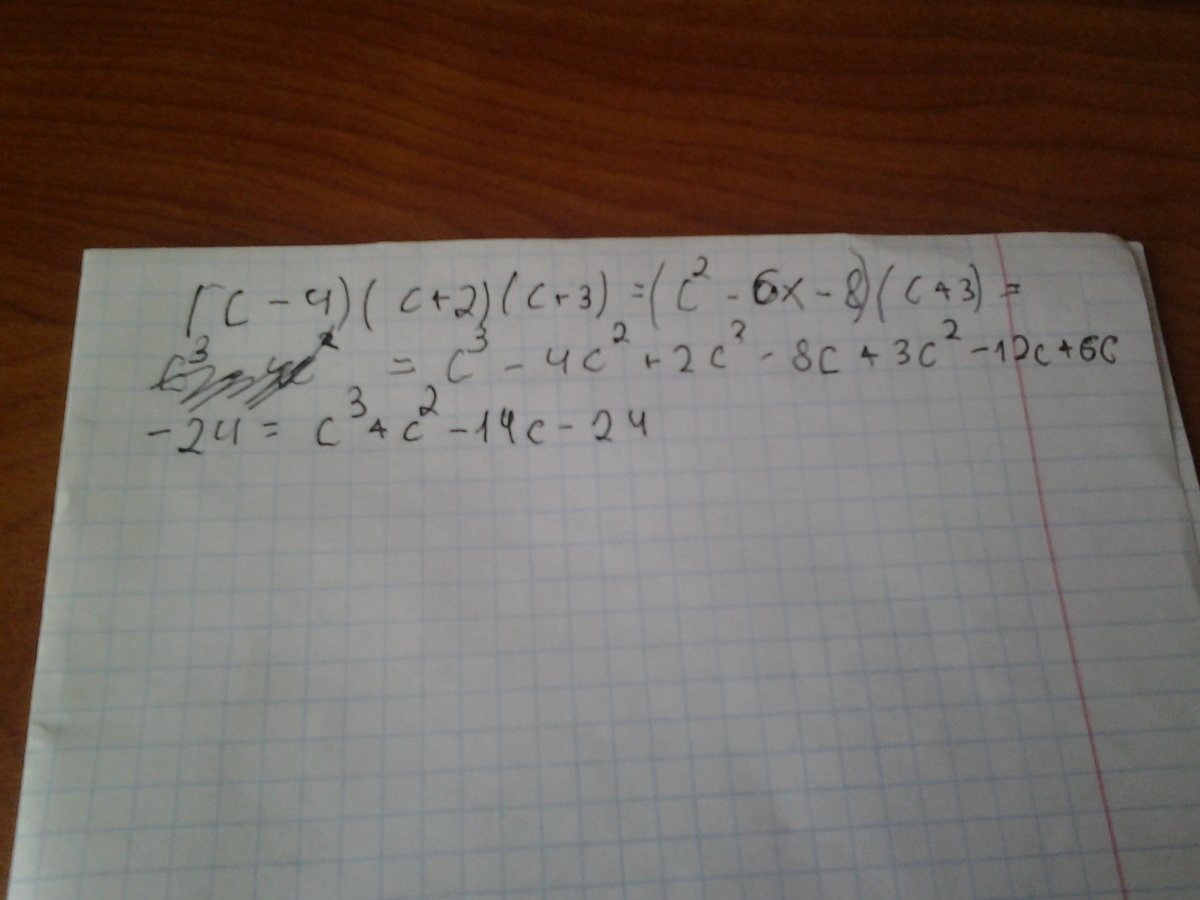 (c - 4)(c+2)(c+3) = (c² - 6x - 8)(c+3) =
= c³ - 4c² + 2c² - 8c + 3c² - 12c + 6c
-24 = c³ + c² - 14c - 24